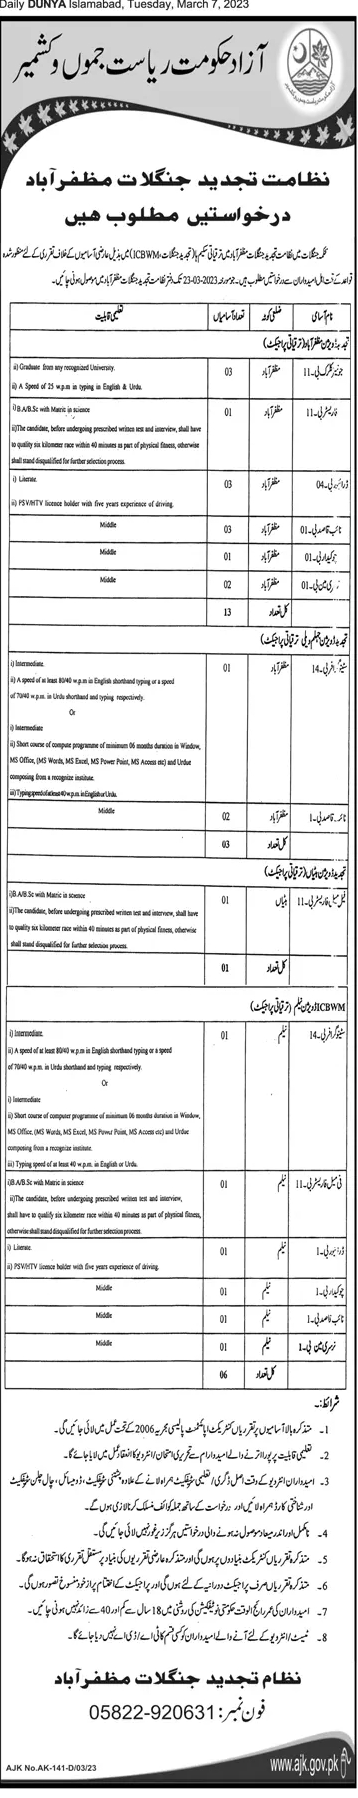 Daily DUNYA Islamabad, Tuesday, March 7, 2023
آزاد حکومت ریاست جموں و کشمیر
نظامت تجدید جنگلات مظفرآباد
درخواستیں مطلوب ہیں
محکمہ جنگلات میں نظامت تجدید جنگلات مظفرآباد میں ترقیاتی سکیم ہا (تجدید جنگلات، ICBWM) میں بذیل عارضی آسامیوں کے خلاف تقرری کے لئے منظور شدہ
قواعد کے تحت اہل امیدواران سے درخواستیں مطلوب ہیں۔ جو مورخہ 23-03-2023 تک دفتر نظامت تجدید جنگلات مظفرآباد میں موصول ہونی چاہئیں۔
نام آسامی ضلعی کوٹہ تعداد آسامیاں تعلیمی قابلیت
تجدید ڈویژن مظفرآباد (ترقیاتی پراجیکٹ)
جونیئر کلرک بی-11 مظفرآباد 03 ii) Graduate from any recognized University.
ii) A Speed of 25 w.p.m in typing in English & Urdu.
فاریسٹر بی-11 مظفرآباد 01 i) B.A/B.Sc with Matric in science
ii)The candidate, before undergoing prescribed written test and interview, shall have
to qualify six kilometer race within 40 minutes as part of physical fitness, otherwise
shall stand disqualified for further selection process.
ڈرائیور بی-04 مظفرآباد 03 i) Literate.
ii) PSV/HTV licence holder with five years experience of driving.
نائب قاصد بی-01 مظفرآباد 03 Middle
چوکیدار بی-01 مظفرآباد 01 Middle
نرسری مین بی-01 مظفرآباد 02 Middle
کل تعداد 13
تجدید ڈویژن جہلم ویلی (ترقیاتی پراجیکٹ)
سٹینوگرافر بی-14 مظفرآباد 01 i) Intermediate.
ii) A speed of at least 80/40 w.p.m in English shorthand typing or a speed
of 70/40 w.p.m. in Urdu shorthand and typing respectively.
Or
i) Intermediate
ii) Short course of compute programme of minimum 06 months duration in Window,
MS Office, (MS Words, MS Excel, MS Power Point, MS Access etc) and Urdue
composing from a recognize institute.
iii) Typing speed of at least 40 w.p.m. in English or Urdu.
نائب قاصد بی-1 مظفرآباد 02 Middle
کل تعداد 03
تجدید ڈویژن ہٹیاں (ترقیاتی پراجیکٹ)
فی میل فاریسٹر بی-11 ہٹیاں 01 i)B.A/B.Sc with Matric in science
ii)The candidate, before undergoing prescribed written test and interview, shall have
to qualify six kilometer race within 40 minutes as part of physical fitness, otherwise
shall stand disqualified for further selection process.
کل تعداد 01
ICBWM ڈویژن نیلم (ترقیاتی پراجیکٹ)
سٹینوگرافر بی-14 نیلم 01 i) Intermediate.
ii) A speed of at least 80/40 w.p.m in English shorthand typing or a speed
of 70/40 w.p.m. in Urdu shorthand and typing respectively.
Or
i) Intermediate
ii) Short course of computer programme of minimum 06 months duration in Window,
MS Office, (MS Words, MS Excel, MS Power Point, MS Access etc) and Urdue
composing from a recognize institute.
iii) Typing speed of at least 40 w.p.m. in English or Urdu.
فی میل فاریسٹر بی-11 نیلم 01 i)B.A/B.Sc with Matric in science
ii)The candidate, before undergoing prescribed written test and interview,
shall have to qualify six kilometer race within 40 minutes as part of physical fitness,
otherwise shall stand disqualified for further selection process.
ڈرائیور بی-1 نیلم 01 i) Literate.
ii) PSV/HTV licence holder with five years experience of driving.
چوکیدار بی-1 نیلم 01 Middle
نائب قاصد بی-1 نیلم 01 Middle
نرسری مین بی-1 نیلم 01 Middle
کل تعداد 06
شرائط:۔
1۔ متذکرہ بالا آسامیوں پر تقرریاں کنٹریکٹ اپائنٹمنٹ پالیسی مجریہ 2006 کے تحت عمل میں لائی جائیں گی۔
2۔ تعلیمی قابلیت پر پورا اترنے والے امیدواران سے تحریری امتحان/انٹرویو کا انعقاد عمل میں لایا جائے گا۔
3۔ امیدواران انٹرویو کے وقت اصل ڈگری/تعلیمی سرٹیفکیٹ ہمراہ لانے کے علاوہ پشتنی سرٹیفکیٹ، ڈومیسائل، چال چلن سرٹیفکیٹ
اور شناختی کارڈ ہمراہ لائیں اور درخواست کے ساتھ جملہ کوائف منسلک کرنا لازمی ہوں گے۔
4۔ نامکمل اور اندر میعاد موصول نہ ہونے والی درخواستیں ہرگز زیر غور نہیں لائی جائیں گی۔
5۔ متذکرہ تقرریاں کنٹریکٹ بنیادوں پر ہوں گی اور متذکرہ عارضی تقرریوں کی بنیاد پر مستقل تقرری کا استحقاق نہ ہوگا۔
6۔ متذکرہ تقرریاں صرف پراجیکٹ دورانیہ کے لئے ہوں گی اور پراجیکٹ کے اختتام پر از خود منسوخ تصور ہوں گی۔
7۔ امیدواران کی عمر رائج الوقت حکومتی نوٹیفکیشن کی روشنی میں 18 سال سے کم اور 40 سے زائد نہیں ہونی چاہئیں۔
8۔ ٹیسٹ/انٹرویو کے لئے آنے والے امیدواران کو کسی قسم کا ٹی اے/ڈی اے نہیں دیا جائے گا۔
نظام تجدید جنگلات مظفرآباد
فون نمبر: 05822-920631
AJK No.AK-141-D/03/23
www.ajk.gov.pk